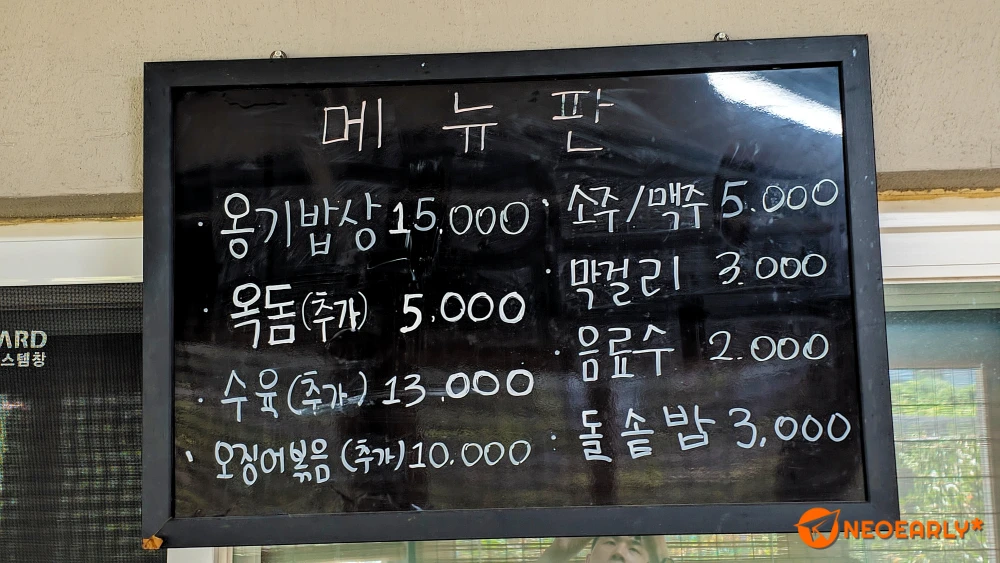 메뉴판
· 옹기밥상 15.000
· 옥돔(추가) 5.000
· 수육(추가) 13.000
· 오징어볶음(추가) 10.000
· 소주/맥주 5.000
· 막걸리 3.000
· 음료수 2.000
· 돌솥밥 3,000
ARD
스템창
NEOEARLY*